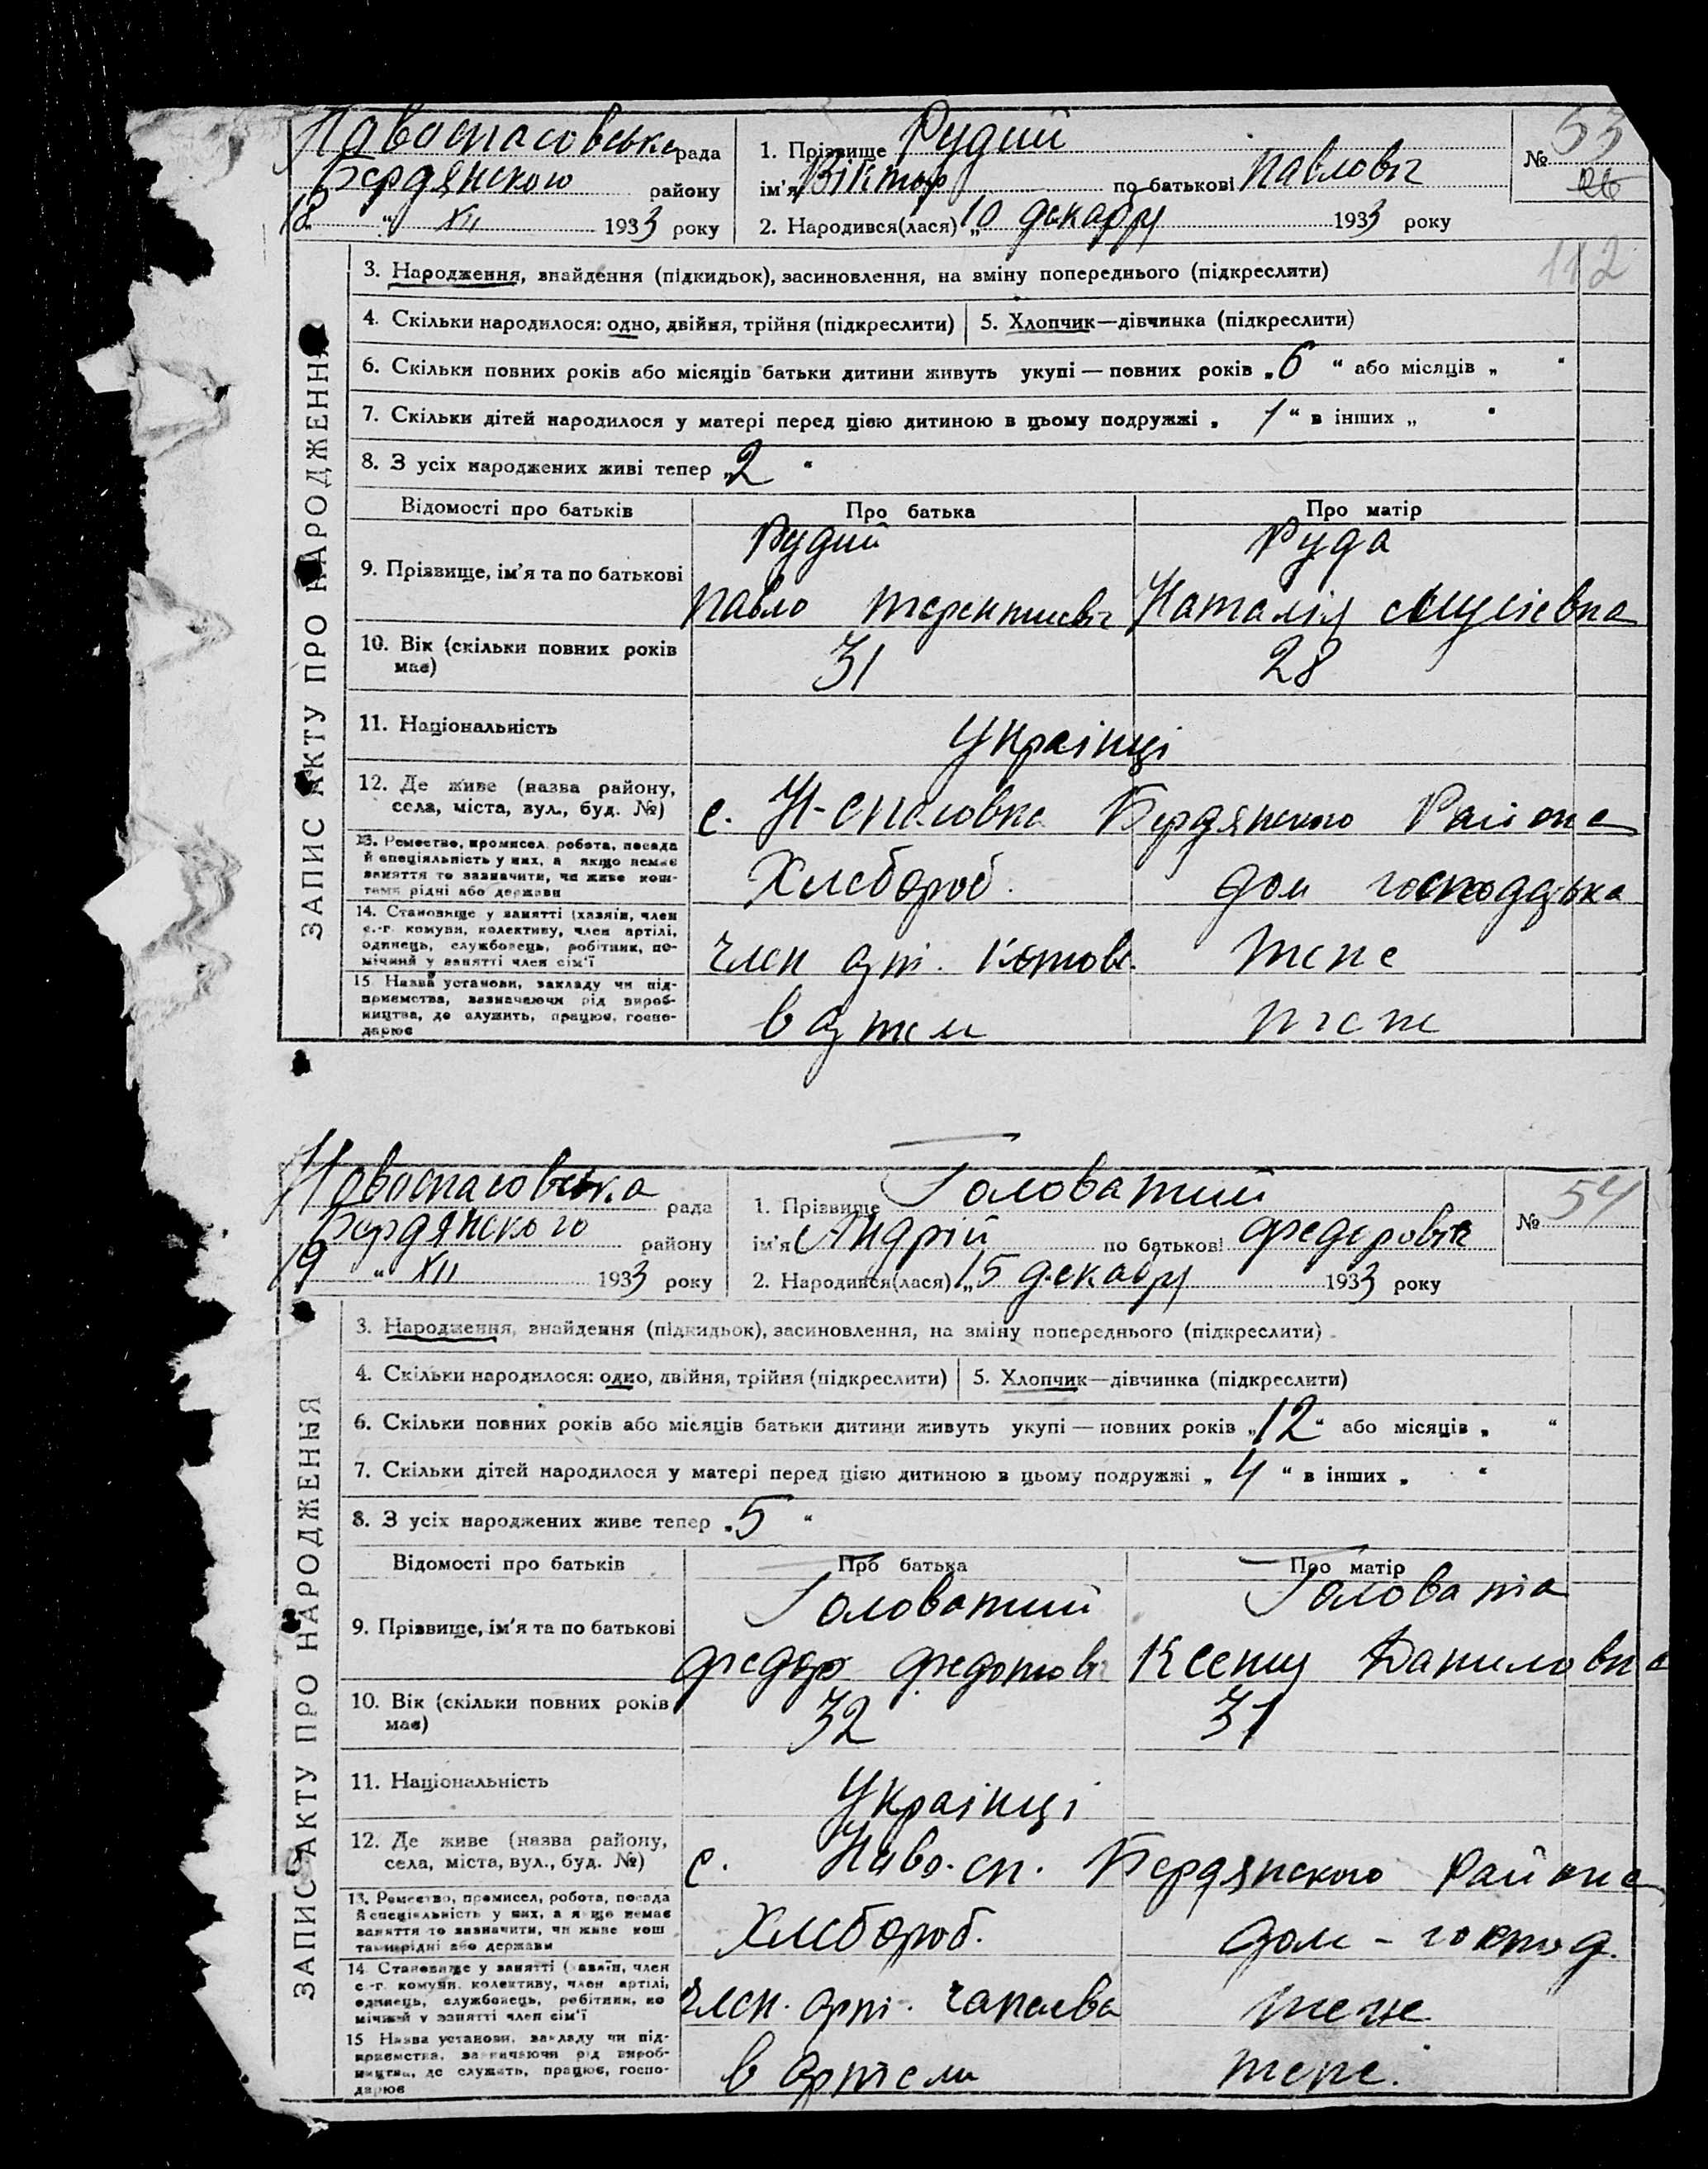 Новоспасовська рада
Бердянского району
18 " XII 1933 року
1. Прізвище Рудий
ім'я Віктор по батькові Павловіч
2. Народився(лася) „10 декабря 1933 року
№ 53
112
ЗАПИС АКТУ ПРО НАРОДЖЕННЯ
3. Народження, знайдення (підкидьок), засиновлення, на зміну попереднього (підкреслити)
4. Скільки народилося: одно, двійня, трійня (підкреслити) 5. Хлопчик—дівчинка (підкреслити)
6. Скільки повних років або місяців батьки дитини живуть укупі — повних років „6 " або місяців „ "
7. Скільки дітей народилося у матері перед цією дитиною в цьому подружжі „ 1 " в інших „ "
8. З усіх народжених живі тепер „2 "
Відомості про батьків Про батька Про матір
Рудий Руда
9. Прізвище, ім'я та по батькові
Павло Терентиевіч Наталія Мусіевна
10. Вік (скільки повних років має) 31 28
11. Національність Українці
12. Де живе (назва району, села, міста, вул., буд. №) с. Н-спасовка Бердянского Района
13. Ремество, промисел, робота, посада й спеціяльність у них, а якщо немає заняття то зазначити, чи живе коштами рідні або держави Хлебороб. дом господарька
14. Становище у занятті (хазяїн, член с.-г. комуни, колективу, член артілі, одинець, службовець, робітник, помічний у занятті член сім'ї член арт.
15. Назва установи, закладу чи підприємства, зазначаючи рід виробництва, де служить, працює, господарює в артели
Новоспасовська рада
Бердянского району
19 " XII 1933 року
1. Прізвище Головатий
ім'я Андрій по батькові Федеровіч
2. Народився(лася) „15 декабря 1933 року
№ 54
ЗАПИС АКТУ ПРО НАРОДЖЕННЯ
3. Народження, знайдення (підкидьок), засиновлення, на зміну попереднього (підкреслити)
4. Скільки народилося: одно, двійня, трійня (підкреслити) 5. Хлопчик—дівчинка (підкреслити)
6. Скільки повних років або місяців батьки дитини живуть укупі — повних років „12" або місяців „ "
7. Скільки дітей народилося у матері перед цією дитиною в цьому подружжі „ 4 " в інших „ "
8. З усіх народжених живе тепер „5 "
Відомості про батьків Про батька Про матір
Головатий Головата
9. Прізвище, ім'я та по батькові
Федор Федотовіч Ксения Даниловна
10. Вік (скільки повних років має) 32 31
11. Національність Українці
12. Де живе (назва району, села, міста, вул., буд. №) с. Ново-сп. Бердянского Района
13. Ремество, промисел, робота, посада й спеціяльність у них, а якщо немає заняття то зазначити, чи живе коштами рідні або держави Хлебороб. дом - господ.
14. Становище у занятті (хазяїн, член с.-г. комуни, колективу, член артілі, одинець, службовець, робітник, помічний у занятті член сім'ї член. арт. Чапаева тоже
15 Назва установи, закладу чи підприємства, зазначаючи рід виробництва, де служить, працює, господарює в артели